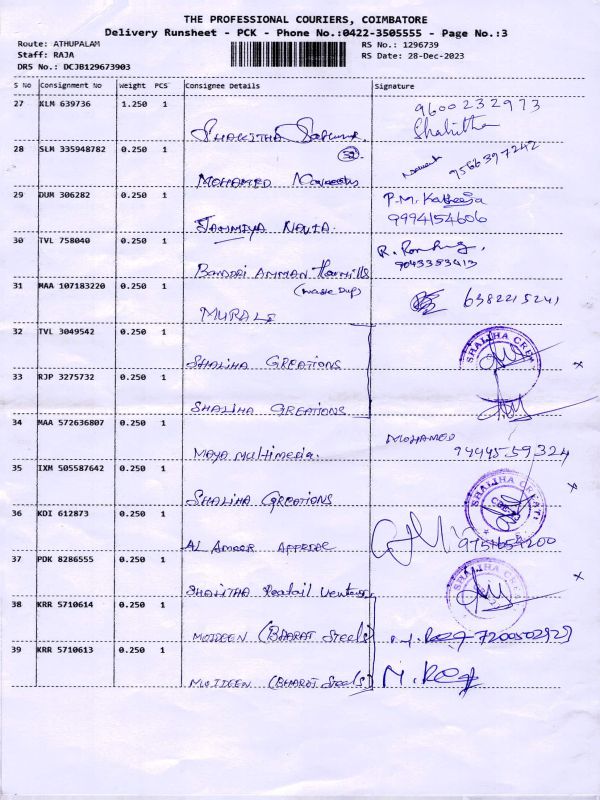 THE PROFESSIONAL COURIERS, COIMBATORE
Delivery Runsheet - PCK - Phone No.:0422-3505555 - Page No.:3
Route: ATHUPALAM
Staff: RAJA
DRS No.: DCJB129673903
RS No.: 1296739
RS Date: 28-Dec-2023
S No Consignment No Weight PCS Consignee Details Signature
27 KLM 639736 1.250 1
9600232973
SHAKITHA
Shahitha
28 SLM 335948782 0.250 1
52
9566397242
MOHAMED
29 DUM 306282 0.250 1
P.M. Katheeja
9994154606
NAVIA.
30 TVL 758040 0.250 1
R.
9043353413
AMMAN
31 MAA 107183220 0.250 1
6382215241
MURALI
32 TVL 3049542 0.250 1
SHALIHA CREATIONS
SHALIHA CREATI
33 RJP 3275732 0.250 1
SHALIHA CREATIONS
34 MAA 572636807 0.250 1
MOHAMED
9444559324
MAYA Multimedia.
35 IXM 505587642 0.250 1
SHALIHA CREATIONS
SHALIHA CREATI
36 KDI 612873 0.250 1
9751654200
AL AMEER
37 PDK 8286555 0.250 1
SHALIHA CREA
SHALITHA Reatail
38 KRR 5710614 0.250 1
MOIDEEN (BHARAT Steels)
7200502929
39 KRR 5710613 0.250 1
MOIDEEN (BHARAT Steels)